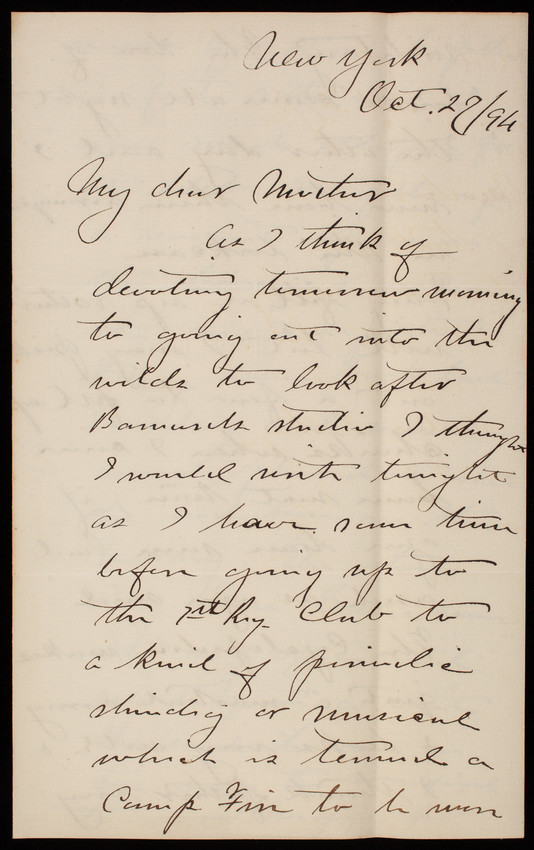 New York
Oct. 27/94
My dear Mother
As I think of
devoting tomorrow morning
to going out into the
wilds to look after
studio I thought
I would write tonight
as I have some time
before going up to
the 7th Reg. Club to
a kind of periodic
shindig or musical
which is termed a
Camp Fire to be